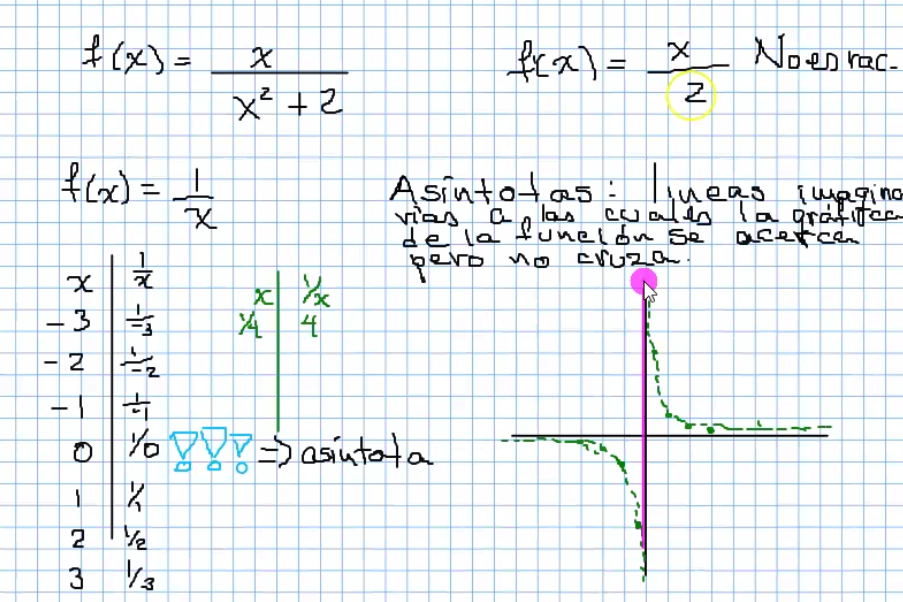 f(x) = x / x² + 2
f(x) = x / 2 No es rac.
f(x) = 1 / x
Asíntotas: líneas imagina
rias a las cuales la gráfica
de la función se acerca
pero no cruza.
x 1/x
-3 1/-3
-2 1/-2
-1 1/-1
0 1/0 !!! => asíntota
1 1/1
2 1/2
3 1/3
x 1/x
1/4 4